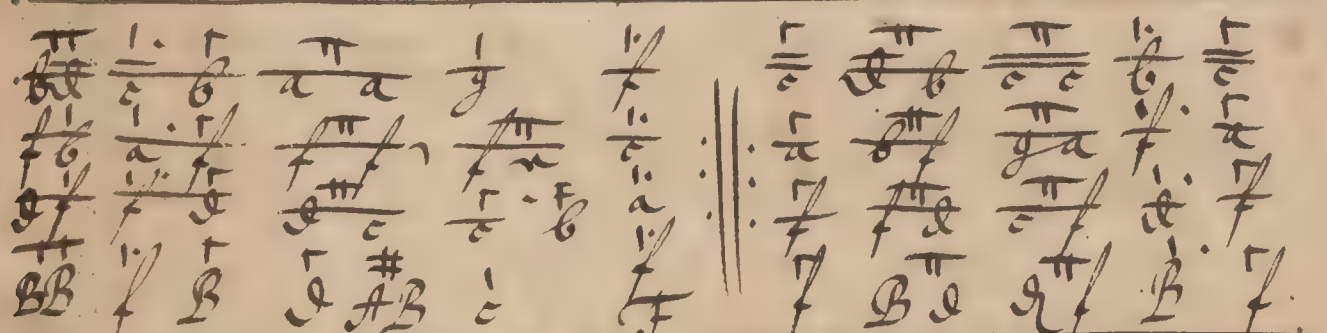 b d c b a a g f c d b c c b c
f b a f f f f n c a b f g a f a
d f f d d c c b a f f d c f d f
B B f B d A B c f F f B d d f B f